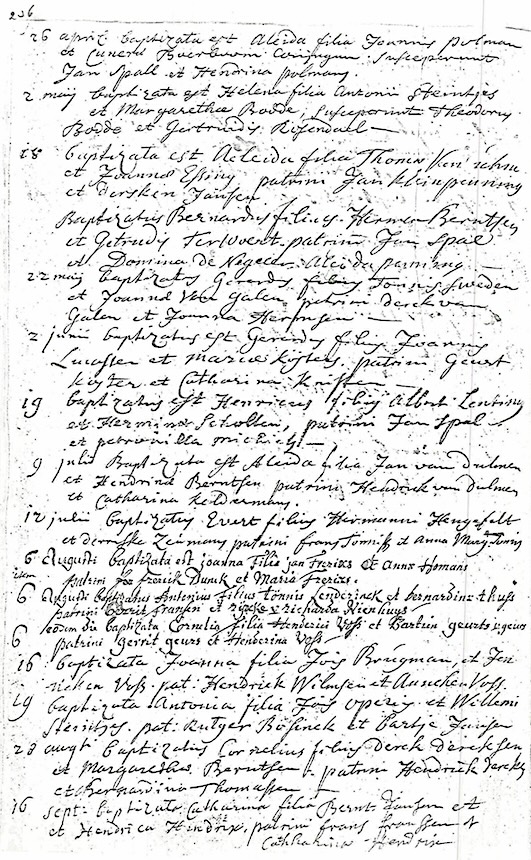 236
26 april baptizata est Aleida filia Joannis polman
et Cunera Boerboom Conjugum. susceperunt
Jan Spall et Hendrina polmans.
2 maij baptizata est Helena filia Antonii Steintjes
et Margarethae Bodde, susceperunt Theodorus
Bodde et Gertrudis Rosendaal
18 baptizata est Aeleida filia Thomis Van
et Joanna Essing patrini Jan kleinpenning
et dersken Jansen
Baptizatus Bernardus filius Herman Berntsen
et Getrudis Terwoert. patrini Jan Spal
et Domina de Negeer Aleida penning
22 maij baptizatus Gerardus filius Tonnis Sweden
et Joanna Van Galen, patrini derck van
Galen et Joanna Hermsen
2 junii baptizatus est Gerardus filius Joannis
Lucassen et maria kosters, patrini Geurt
koster et Catharina
19 baptizatus est Henricus filius Albert Lenting
et Hermina Scholten, patrini Jan Spal
et petronilla michiels
9 julii Baptizata est Aleida filia Jan van dulmen
et Hendrina Berntsen patrini Hendrick van dulmen
et Catharina
12 julii baptizatus Evert filius Hermanni Hengefelt
et derriske Zeimans patrini frans et Anna
6 Augusti baptizata est joanna filia jan frerixs et Anna Homans
item patrini frerick Dunk et Maria frerixs.
6 Augusti baptizatus Antonius filius tönnis kenderinck et bernardina
patrini Gerrit fransen et richarda Nienhuys
6 eodem die baptizata Cornelia filia Henderici Voss et Bartrin geurts
patrini gerrit geurs et Henderina Voss
16 baptizata Joanna filia Jois Brugman, et Jen
neken Voss. pat. Hendrick Wilmsen et Anneken Voss.
19 baptizata Antonia filia Jois et Willemi
Steintjes. pat: Rutger Bösinck et bartje Jansen
28 augti Baptizatus Cornelius filius Derck Dercksen
et Margaretha Berntsen patrini Hendrick Dercks
et Bernardina Thomassen
16 sept: baptizata Catharina filia Bernt Jansen et
et Hendrica Hendrix, patrini frans franssen et
Catharina Hendrix